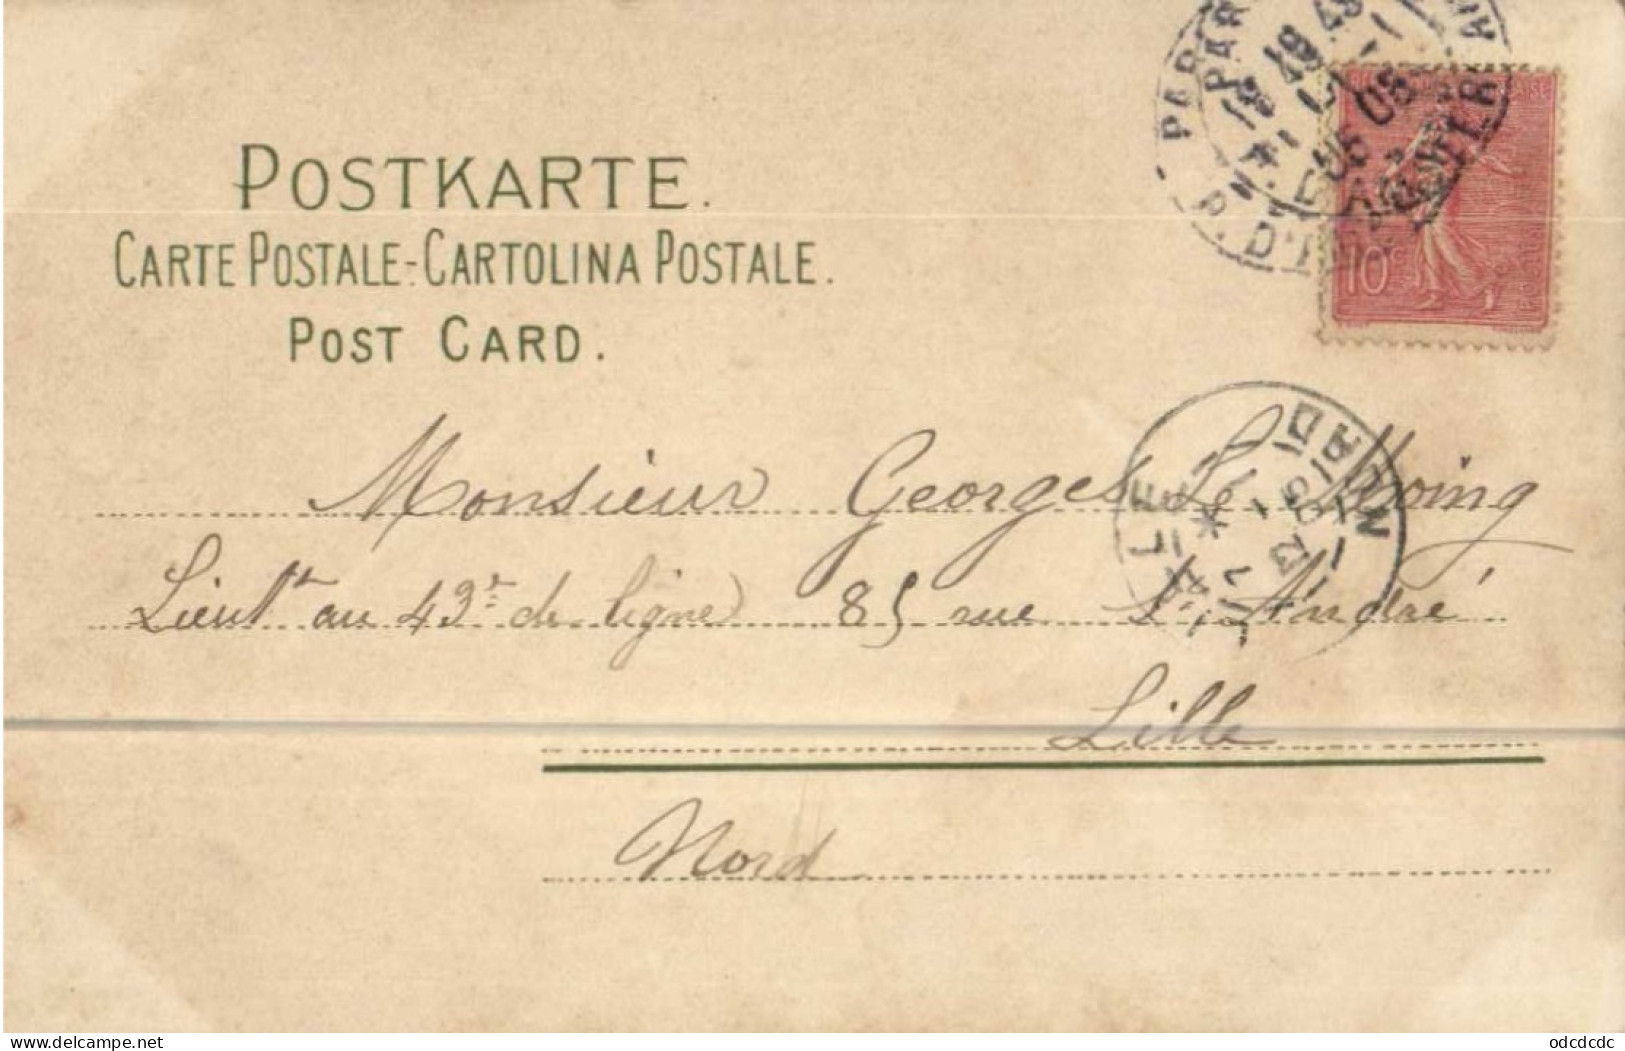 POSTKARTE.
CARTE POSTALE-CARTOLINA POSTALE.
POST CARD.
PARIS
10
Monsieur Georges Le
Lieutt au 43e de ligne 85 rue St André
Lille
Nord
LILLE
NORD
www.delcampe.net
odcdcdc